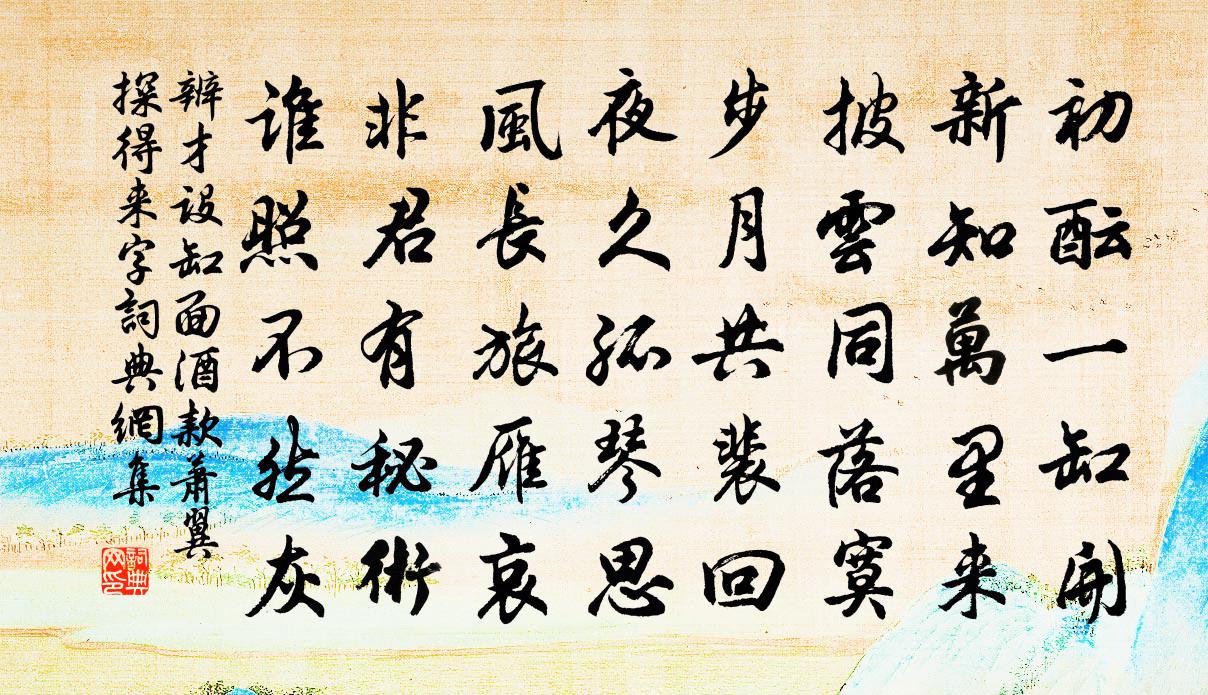 初酝一缸開
新知萬里来
披雲同落寞
步月共裴回
夜久孤琴思
風長旅雁哀
非君有秘術
谁照不然灰
辨才设缸面酒款萧翼
探得来字詞典網集
詞典网印